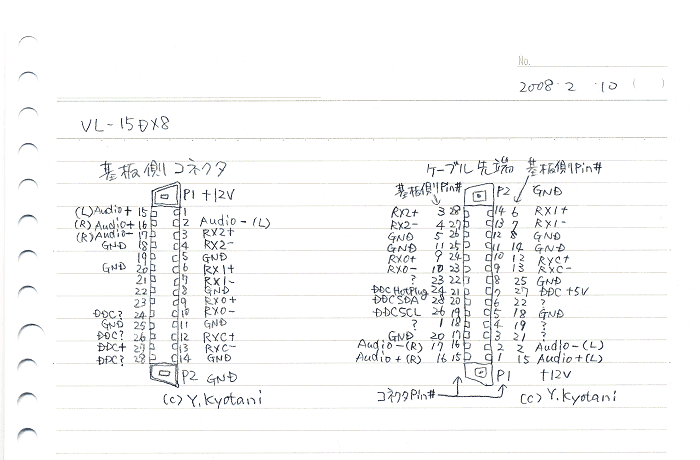 No.
2008・2・10 ( )
VL-15DX8
基板側コネクタ
P1 +12V
(L) Audio+ 15 1
(R) Audio+ 16 2 Audio-(L)
(R) Audio- 17 3 RX2+
GND 18 4 RX2-
19 5 GND
GND 20 6 RX1+
21 7 RX1-
22 8 GND
23 9 RX0+
DDC? 24 10 RX0-
GND 25 11 GND
DDC? 26 12 RXC+
DDC+ 27 13 RXC-
DDC? 28 14 GND
P2 GND
(c) Y.Kyotani
ケーブル先端 基板側Pin#
基板側Pin# P2 GND
RX2+ 3 28 14 6 RX1+
RX2- 4 27 13 7 RX1-
GND 5 26 12 8 GND
GND 11 25 11 14 GND
RX0+ 9 24 10 12 RXC+
RX0- 10 23 9 13 RXC-
? 23 22 8 25 GND
DDC HotPlug 24 21 7 27 DDC +5V
DDCSDA 28 20 6 22 ?
DDCSCL 26 19 5 18 GND
? 1 18 4 19 ?
GND 20 17 3 21 ?
Audio-(R) 17 16 2 2 Audio-(L)
Audio+(R) 16 15 1 15 Audio+(L)
P1 +12V
コネクタPin#
(c) Y.Kyotani